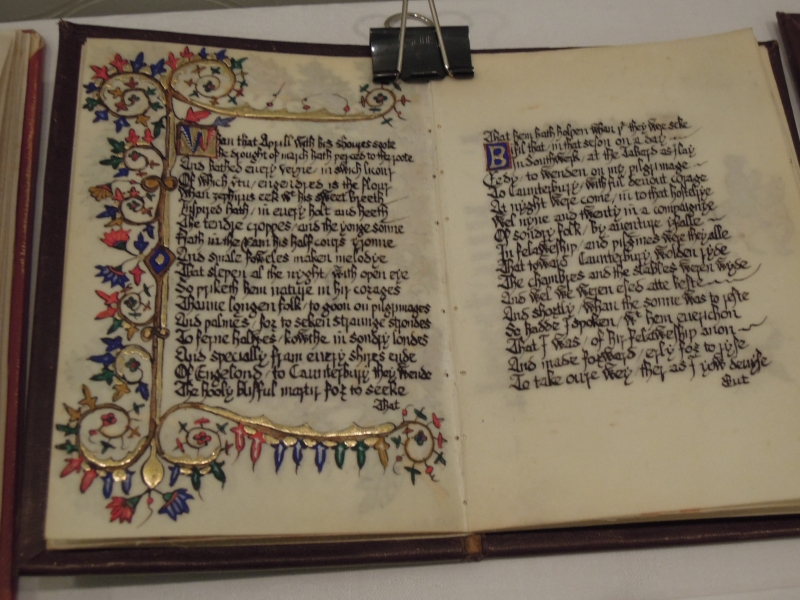 Whan that Aprill with his shoures soote
The drought of march hath perced to the roote
And bathed every veyne / in swich licour
Of which vtu / engendred is the flour
Whan zephirus eek wt his sweet breeth
Inspired hath / in every holt and heeth
The tendre croppes / and the yonge sonne
Hath in the Ram his half cours yronne
And smale foweles maken melodye
That slepen al the nyght / with open eye
So priketh hem nature in hir corages
Thanne longen folk / to goon on pilgrimages
And palmeres / for to seken straunge strondes
To ferne halwes / kowthe in sondry londes
And specially from every shires ende
Of Engelond / to Caunterbury they wende
The hooly blisful martir for to seeke
That
That hem hath holpen whan þt they were seke
Bifil that / in that seson on a day
In Southwerk / at the Tabard as I lay
Redy / to wenden on my pilgrimage
To Caunterbury / with ful devout corage
At nyght were come / in to that hostelrye
Wel nyne and twenty in a compaignye
Of sondry folk / by aventure yfalle
In felaweship / and pilgrimes were they alle
That toward Caunterbury wolden ryde
The chambres and the stables weren wyde
And wel we weren esed atte beste
And shortly / whan the sonne was to reste
So hadde I spoken / wt hem everichon
That I was / of hir felaweship anon
And made forward / erly for to ryse
To take oure wey / ther as I yow devyse
But